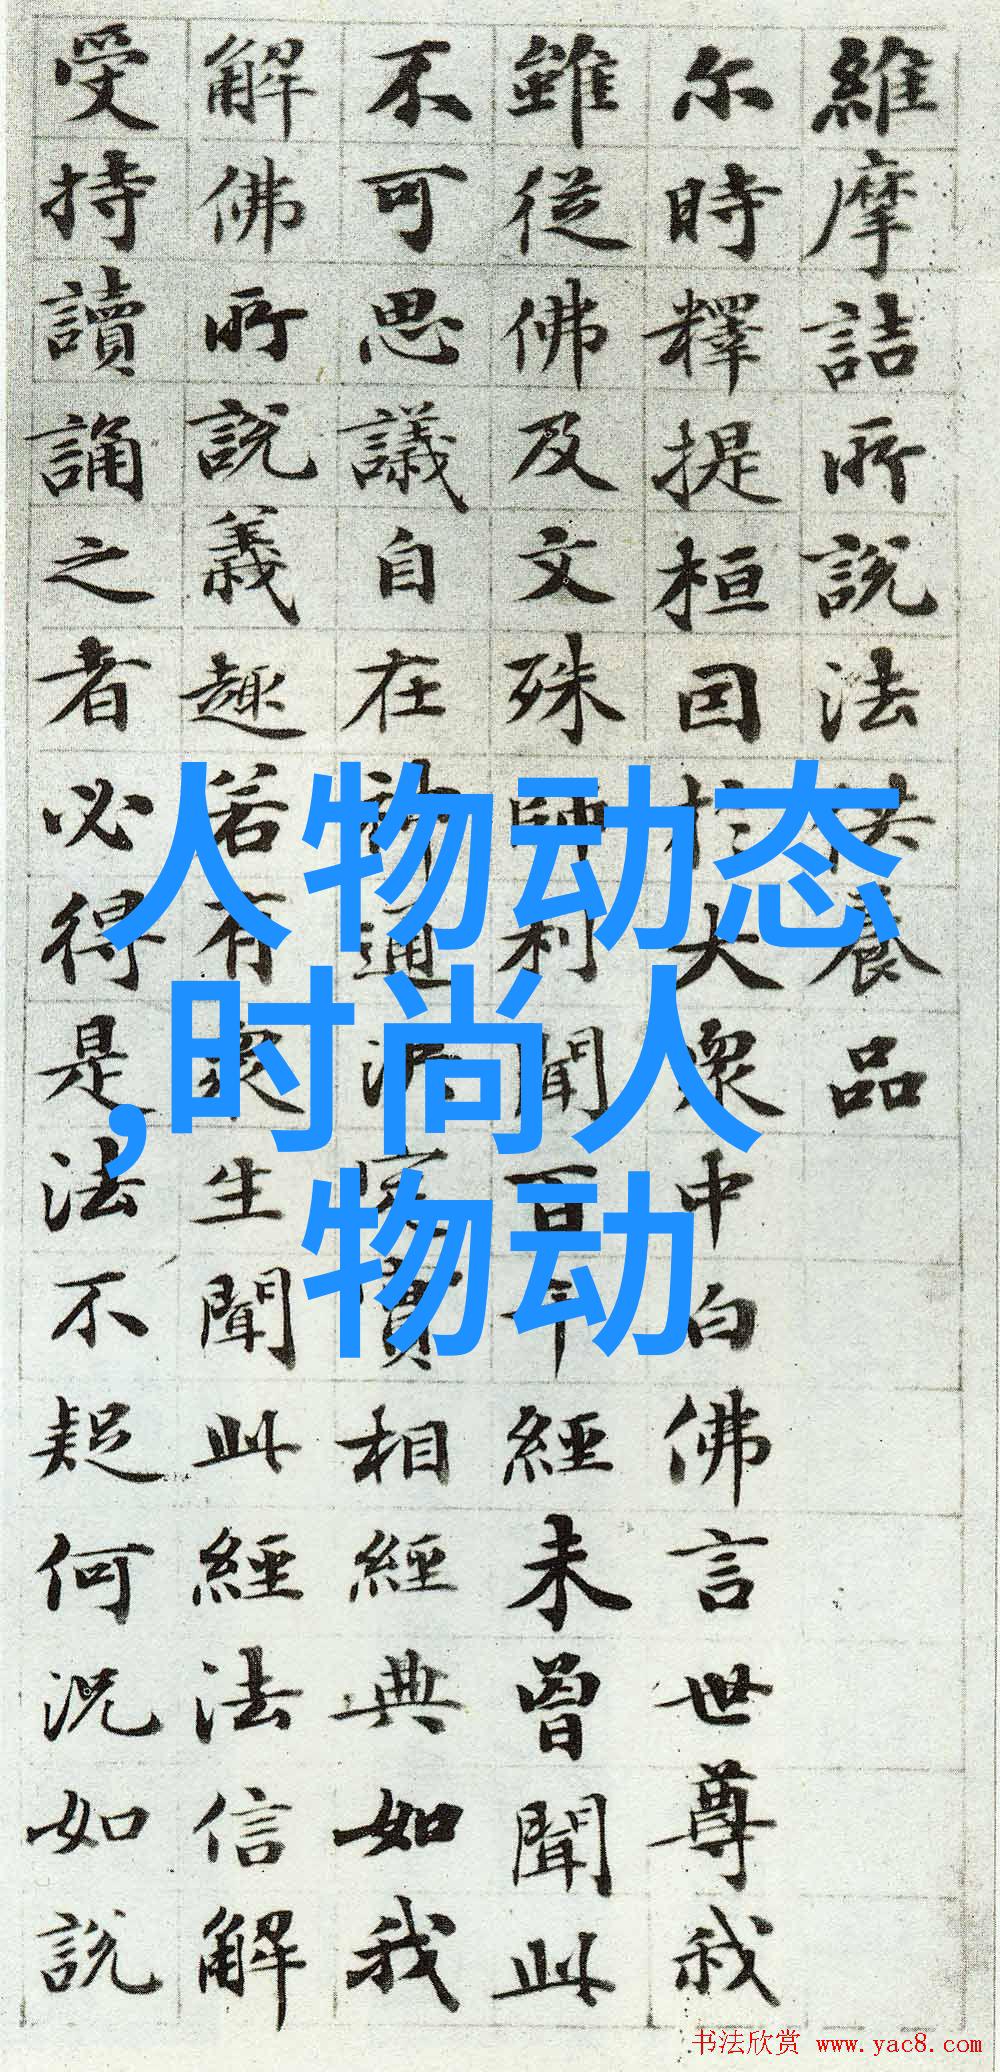 維摩詰所説法供養品
尓時釋提桓因於大衆中白佛言世尊我
雖從佛及文殊師利聞百千經未曾聞此
不可思議自在神通決定實相經典如我
解佛所説義趣若有衆生聞此經法信解
受持讀誦之者必得是法不疑何況如説
人物动态
,时尚人
物动
书法欣赏 www.yac8.com